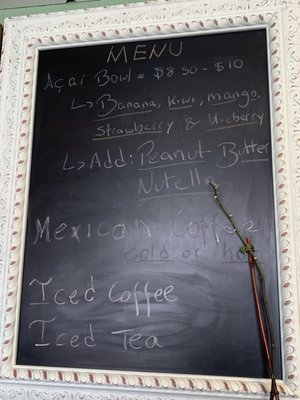 MENU
Açai Bowl = $8.50 - $10
↳ Banana, Kiwi, mango,
Strawberry & blueberry
↳ Add: Peanut-Butter
Nutella
Mexican Coffee
cold or hot
Iced Coffee
Iced Tea